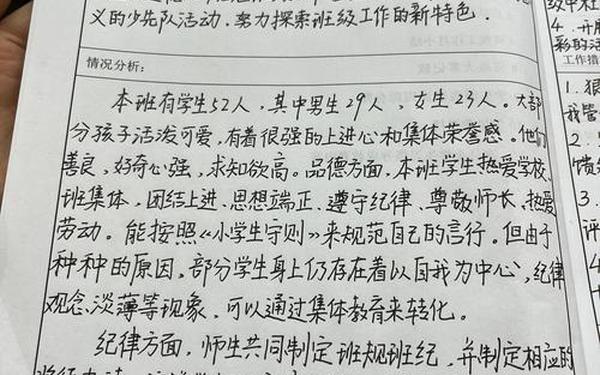 义的少先队活动．努力探索班级工作的新特色．
情况分析：
本班有学生52人，其中男生29人，女生23人。大部
分孩子活泼可爱，有着很强的上进心和集体荣誉感。他们
善良，好奇心强，求知欲高。品德方面，本班学生热爱学校、
班集体，团结上进、思想端正、遵守纪律、尊敬师长、热爱
劳动。能按照《小学生守则》来规范自己的言行。但由于
种种的原因，部分学生身上仍存在着以自我为中心，纪律
观念、淡薄等现象，可以通过集体教育来转化。
纪律方面，师生共同制定班规班纪，并制定相应的
级中社
4．开展
彩的活
工作措
1．狠
我管
2．
馈
3．
评
4．